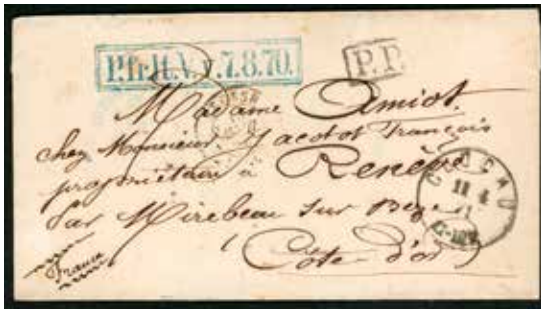 P.fr.H.V. v. 7.8.70.
P.P.
Madame Amiot.
chez Monsieur Jacotot François
propriétaire à Renève
par Mirebeau sur Bèze
(Côte d'or)
France
GLOGAU
11 4
71